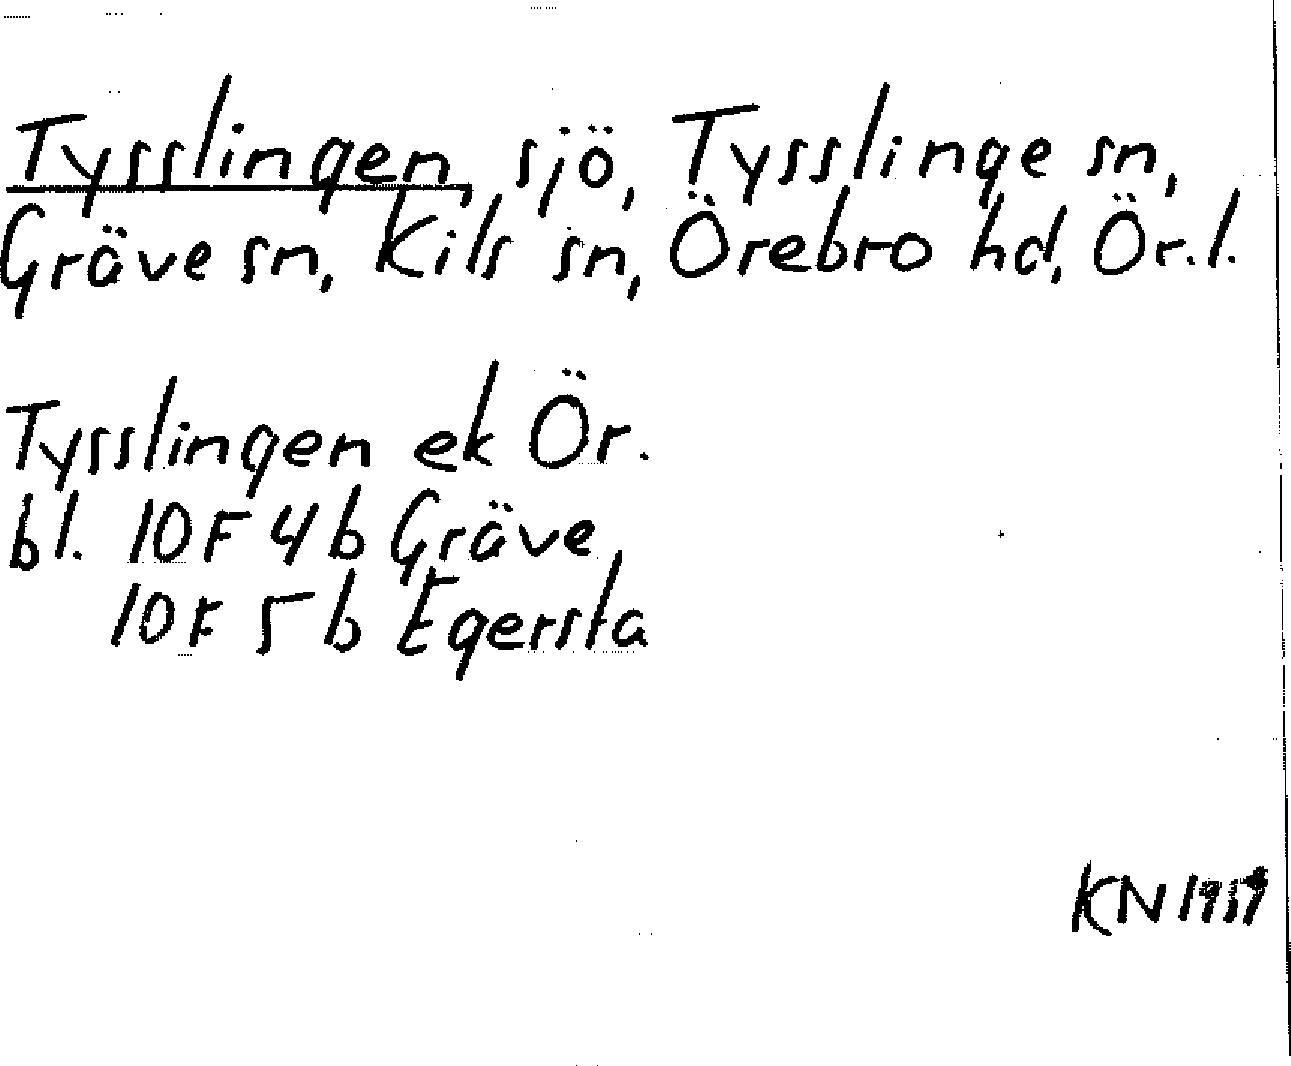 Tysslingen, sjö, Tysslinge sn,
Gräve sn, Kils sn, Örebro hd, Ör.l.
Tysslingen ek Ör.
bl. 10F 4b Gräve,
10F 5b Egersta
KN